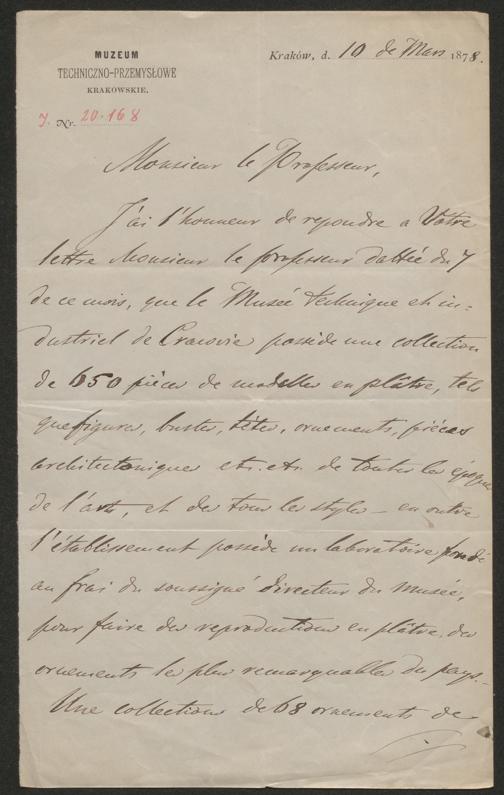 MUZEUM
TECHNICZNO-PRZEMYSŁOWE
KRAKOWSKIE.
Kraków, d. 10 de Mars 1878.
J. Nr. 20.168
Monsieur le Professeur,
J'ai l'honneur de repondre a Votre
lettre Monsieur le professeur dattée du 7
de ce mois, que le Musée technique et in=
dustriel de Cracovie possède une collection
de 650 pièces de modelles en plâtre, tels
que figures, bustes, têtes, ornements, pièces
architectoniques etc. etc. de toutes les époques
de l'art, et de tous les styles – en outre
l'établissement possède un laboratoire fondé
au frai du soussigné directeur du musée,
pour faire des reproductions en plâtre des
ornements les plus remarquables du pays. –
Une collections de 68 ornements de